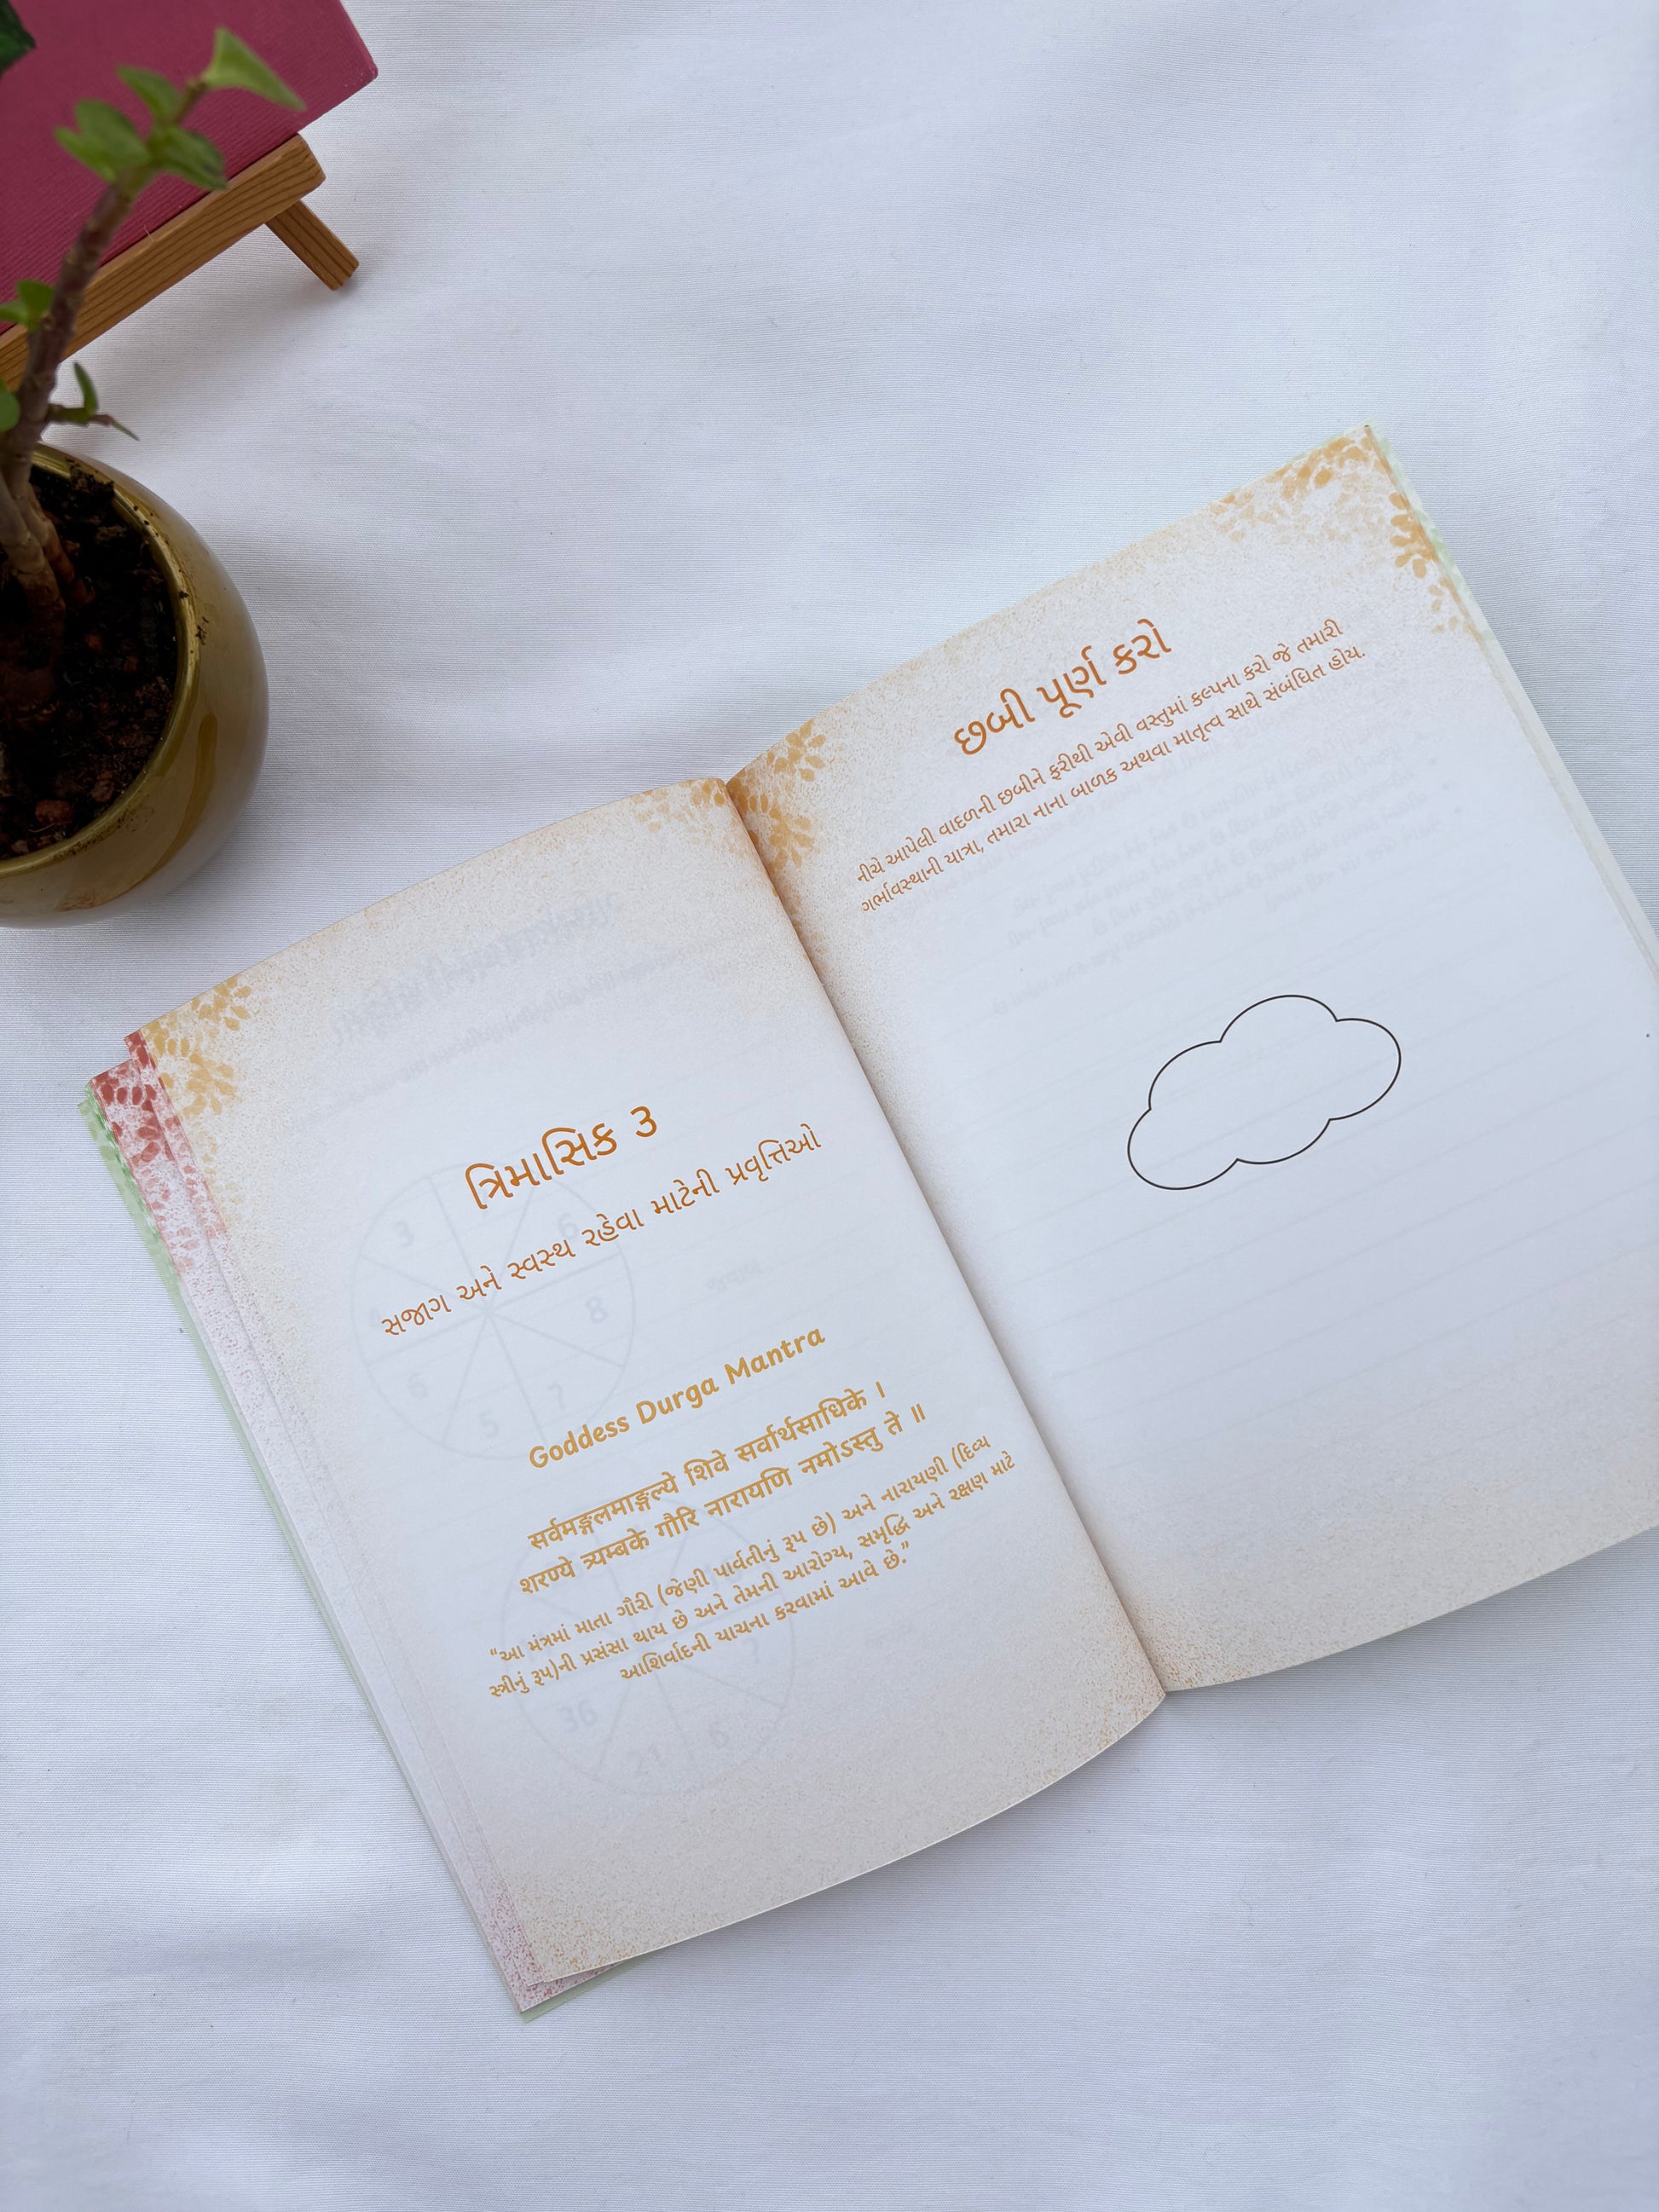 ત્રિમાસિક ૩
સજાગ અને સ્વસ્થ રહેવા માટેની પ્રવૃત્તિઓ
Goddess Durga Mantra
सर्वमङ्गलमाङ्गल्ये शिवे सर्वार्थसाधिके ।
शरण्ये त्र्यम्बके गौरि नारायणि नमोऽस्तु ते ॥
“આ મંત્રમાં માતા ગૌરી (જેણી પાર્વતીનું રૂપ છે) અને નારાયણી (દિવ્ય
સ્ત્રીનું રૂપ)ની પ્રસંસા થાય છે અને તેમની આરોગ્ય, સમૃદ્ધિ અને રક્ષણ માટે
આશિર્વાદની યાચના કરવામાં આવે છે.”
છબી પૂર્ણ કરો
નીચે આપેલી વાદળની છબીને ફરીથી એવી વસ્તુમાં કલ્પના કરો જે તમારી
ગર્ભાવસ્થાની યાત્રા, તમારા નાના બાળક અથવા માતૃત્વ સાથે સંબંધિત હોય.